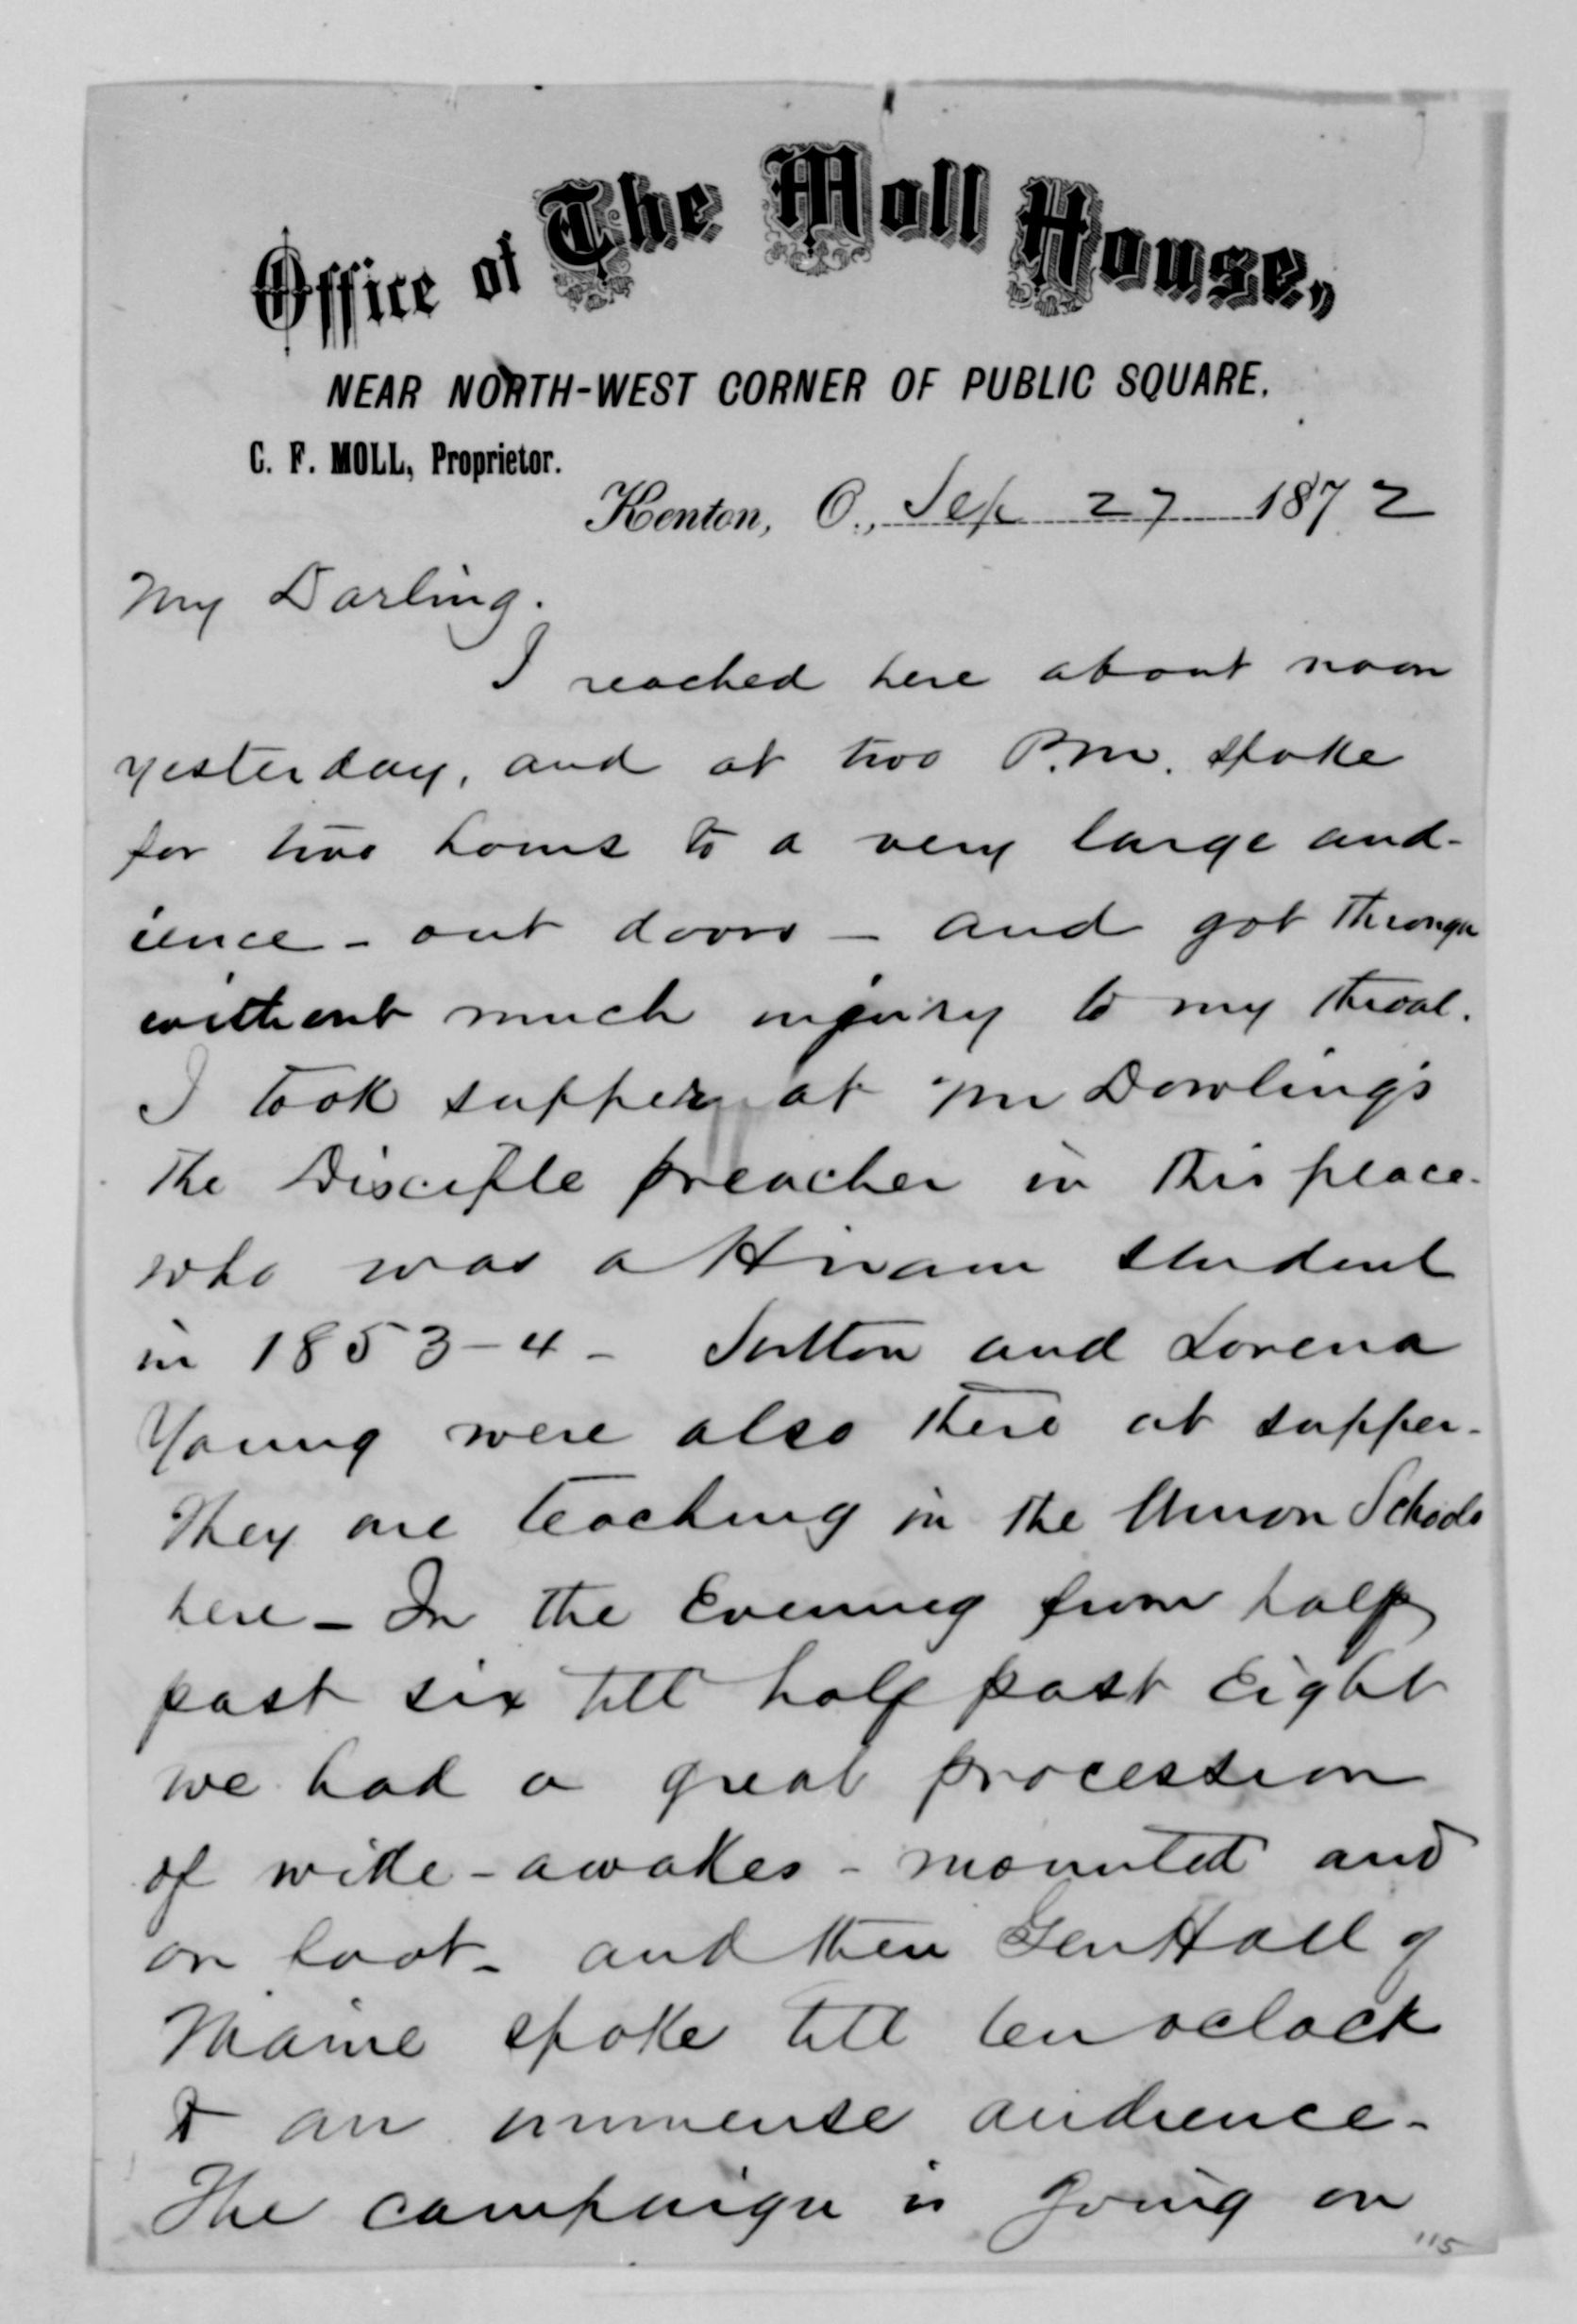 Office of The Moll House,
NEAR NORTH-WEST CORNER OF PUBLIC SQUARE.
C. F. MOLL, Proprietor.
Kenton, O., Sep 27 1872
My Darling.
I reached here about noon
yesterday, and at two P.M. spoke
for two hours to a very large aud-
ience - out doors - and got through
without much injury to my throat.
I took supper at Mr Dowling's
the Disciple preacher in this place.
who was a Hiram student
in 1853-4 - Sutton and Lorena
Young were also there at supper.
They are teaching in the Union Schools
here - In the Evening from half
past six till half past Eight
we had a great procession
of wide-awakes - mounted and
on foot - and then Gen Hall of
Maine spoke till ten oclock
to an immense audience.
The campaign is going on
115